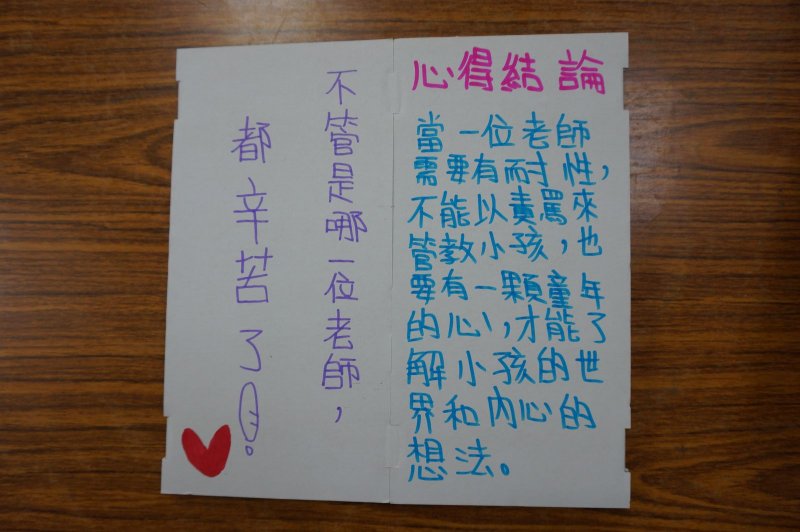 心得結論
當一位老師
需要有耐性，
不能以責罵來
管教小孩，也
要有一顆童年
的心，才能了
解小孩的世
界和內心的
想法。
不管是哪一位老師，
都辛苦了！